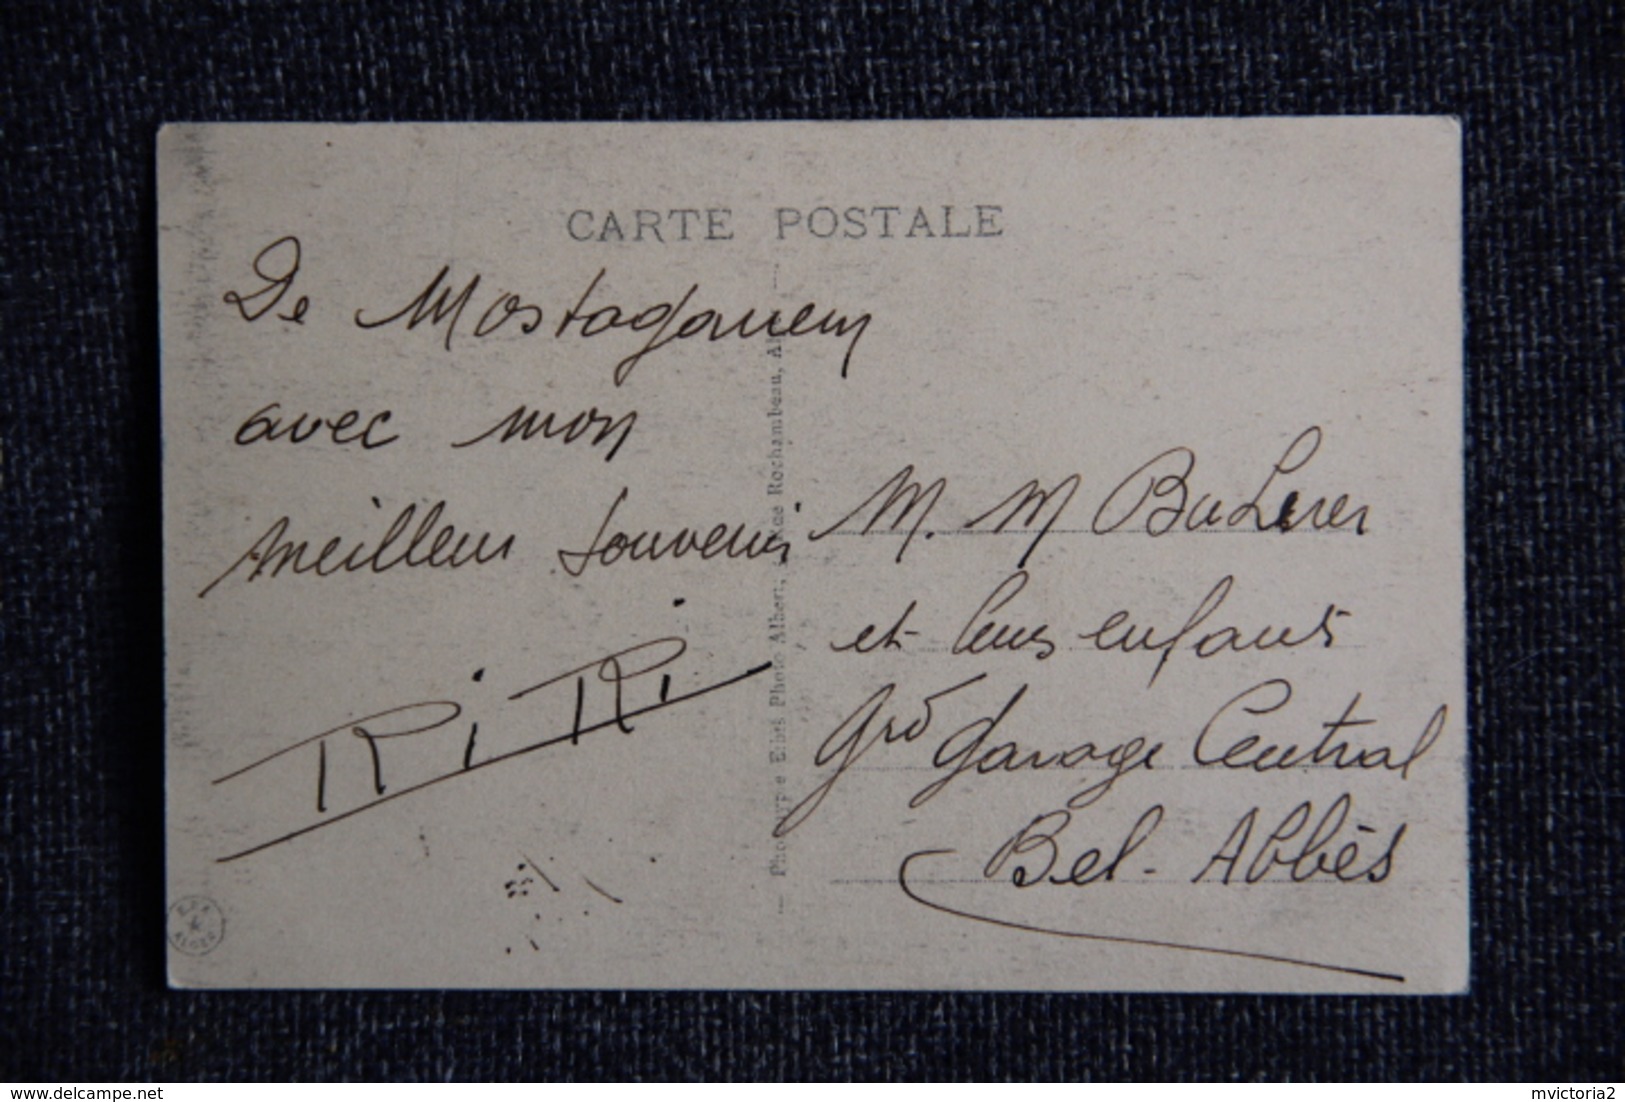 CARTE POSTALE
De Mostaganem
avec mon
meilleur souvenir
RiRi
M. M
et leurs enfants
Grd Garage Central
Bel-Abbès
Phototypie Edits Photo Albert, Rue Rochambeau, Al
ALGER
delcampe.net
mvictoria2